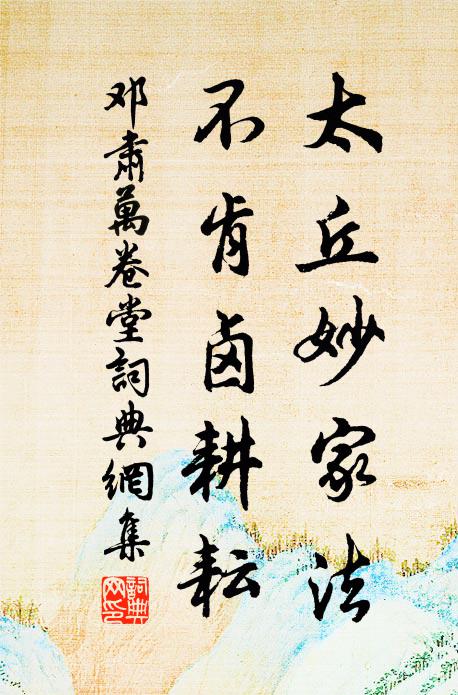 太丘妙家法
不肯卤耕耘
邓肃萬卷堂詞典網集
詞典